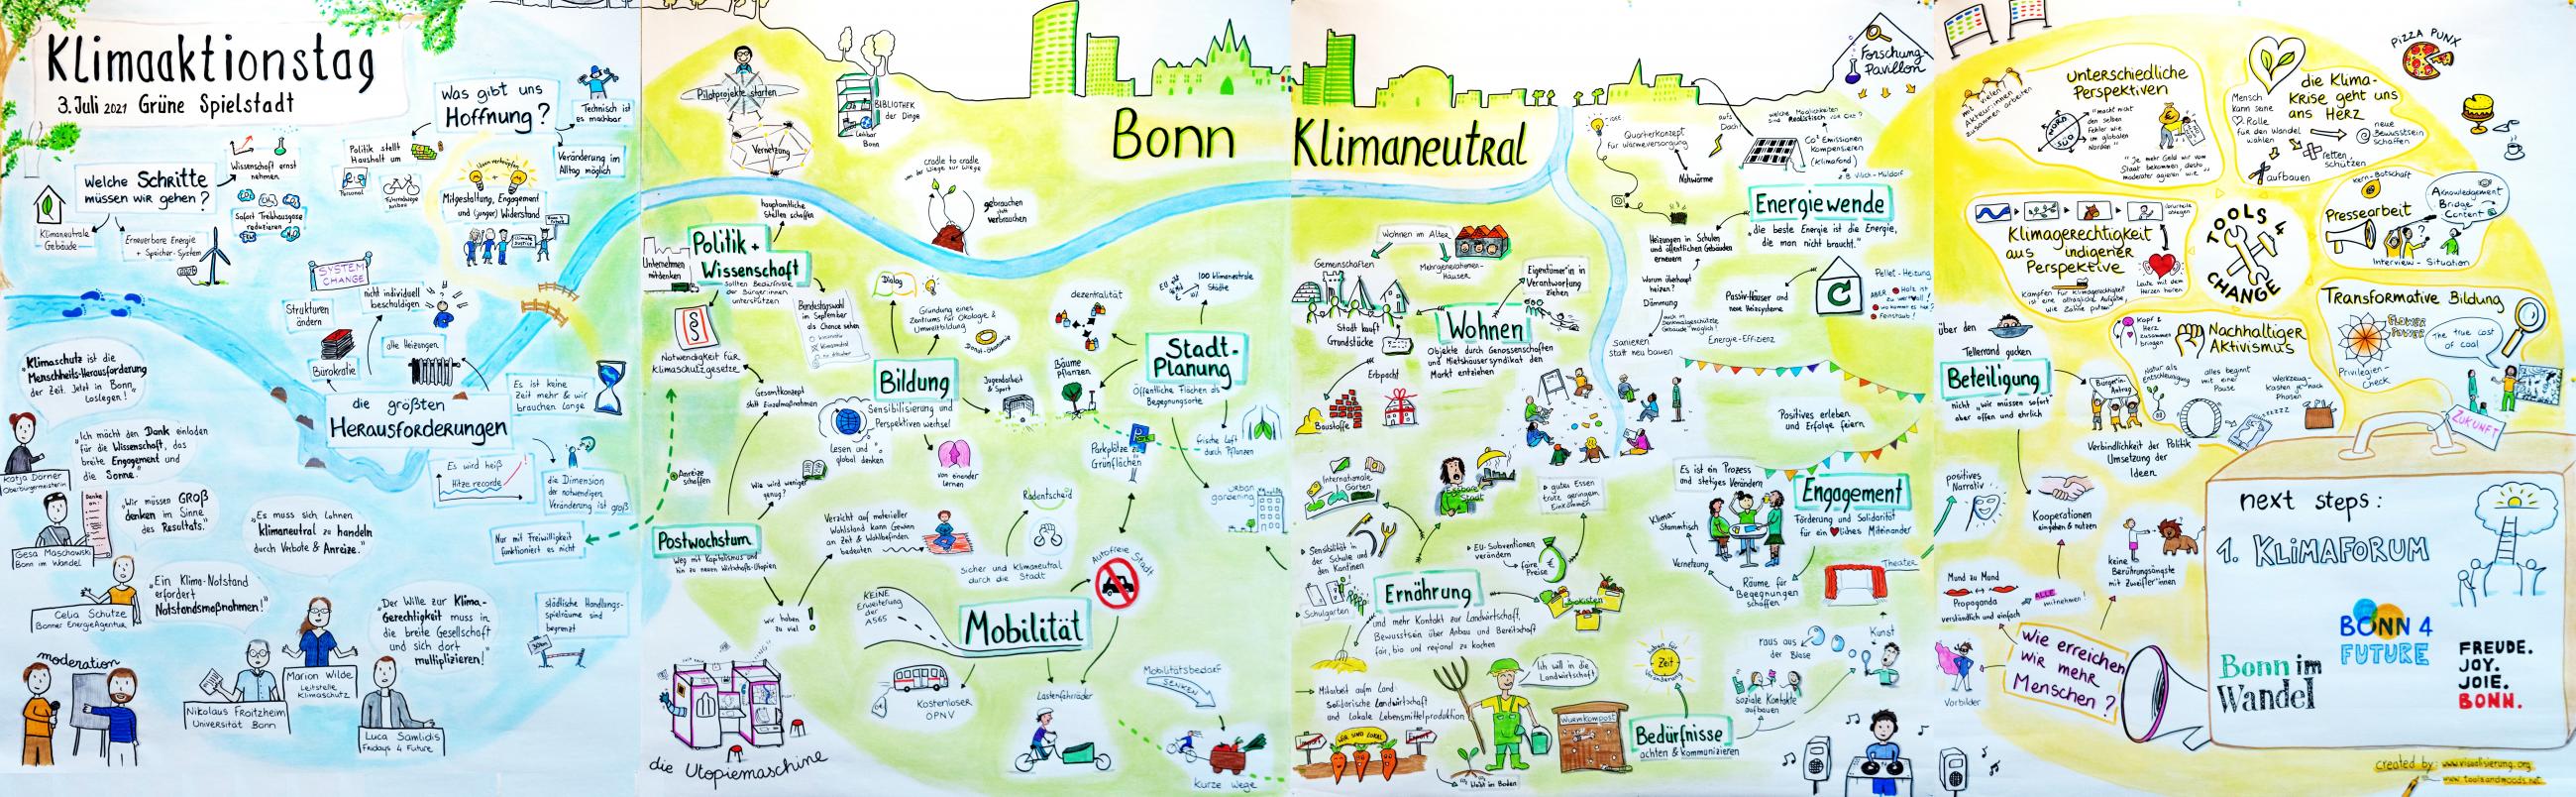 Klimaaktionstag
3. Juli 2021 Grüne Spielstadt
Was gibt uns
Hoffnung?
Technisch ist
es machbar
Politik stellt
Haushalt um
Personal
Veränderung im
Alltag möglich
Mitgestaltung, Engagement
und (junger) Widerstand
Wissenschaft ernst
nehmen
Welche Schritte
müssen wir gehen?
Klimaneutrale
Gebäude
Erneuerbare Energie
+ Speicher-System
Sofort Treibhausgase
reduzieren
SYSTEM
CHANGE
Strukturen
ändern
nicht individuell
beschuldigen
Bürokratie
alte Heizungen
die größten
Herausforderungen
Es ist keine
Zeit mehr & wir
brauchen lange
Es wird heiß
Hitzerecorde
die Dimension
der notwendigen
Veränderung ist groß
Nur mit Freiwilligkeit
funktioniert es nicht
städtische Handlungs-
spielräume sind
begrenzt
„Klimaschutz ist die
Menschheits-Herausforderung
der Zeit. Jetzt in Bonn
loslegen!"
Katja Dörner
Oberbürgermeisterin
„Ich möcht den Dank einladen
für die Wissenschaft, das
breite Engagement und
die Sonne."
Danke
an:
„Wir müssen GROß
denken im Sinne
des Resultats."
Gesa Maschowski
Bonn im Wandel
„Es muss sich lohnen
klimaneutral zu handeln
durch Verbote & Anreize."
„Ein Klima-Notstand
erfordert
Notstandsmaßnahmen!"
Celia Schütze
Bonner EnergieAgentur
„Der Wille zur Klima-
Gerechtigkeit muss in
die breite Gesellschaft
und sich dort
multiplizieren!"
moderation
Nikolaus Froitzheim
Universität Bonn
Marion Wilde
Leitstelle
Klimaschutz
Luca Samlidis
Fridays 4 Future
Pilotprojekte starten
Vernetzung
BIBLIOTHEK
der Dinge
Leihbar
Bonn
cradle to cradle
gebrauchen
statt
verbrauchen
Bonn
Klimaneutral
hauptamtliche
Stellen schaffen
Politik +
Wissenschaft
sollten Bedürfnisse
der Bürger:innen
unterstützen
Unternehmen
mitdenken
Notwendigkeit für
Klimaschutzgesetze
Bundestagswahl
im September
als Chance sehen
Dialog
Gründung eines
Zentrums für Ökologie &
Umweltbildung
Donut-Ökonomie
Bildung
Sensibilisierung und
Perspektivenwechsel
Jugendarbeit
& Sport
Lesen und
global denken
von einander
lernen
Gesamtkonzept
statt Einzelmaßnahmen
Anreize
schaffen
Wie wird weniger
genug?
Postwachstum
Weg mit Kapitalismus und
hin zu neuen Wirtschafts-Utopien
Verzicht auf materieller
Wohlstand kann Gewinn
an Zeit & Wohlbefinden
bedeuten
wir haben
zu viel
die Utopiemaschine
dezentralität
EU
100 klimaneutrale
Städte
Stadt-
Planung
Öffentliche Flächen als
Begegnungsorte
Bäume
pflanzen
Parkplätze zu
Grünflächen
frische Luft
durch Pflanzen
urban
gardening
Radentscheid
Sicher und klimaneutral
durch die Stadt
Autofreie Stadt
KEINE
Erweiterung
der
A565
Mobilität
Kostenloser
OPNV
Lastenfahrräder
Mobilitätsbedarf
SENKEN
kurze Wege
Forschung-
Pavillon
Quartierkonzept
für Wärmeversorgung
aufs
Dach!
Nahwärme
Co² Emissionen
kompensieren
(Klimafond)
Energiewende
„die beste Energie ist die Energie,
die man nicht braucht."
Heizungen in Schulen
und öffentlichen Gebäuden
erneuern
Warum überhaupt
heizen?
Dämmung
Sanieren
statt neu bauen
Passiv-Häuser und
neue Heizsysteme
Energie-Effizienz
Pellet-Heizung
Wohnen im Alter
Mehrgenerationen-
Häuser
Gemeinschaften
Stadt kauft
Grundstücke
Eigentümer*in in
Verantwortung
ziehen
Wohnen
Objekte durch Genossenschaften
und Mietshäusersyndikat dem
Markt entziehen
Erbpacht
Baustoffe
Positives erleben
und Erfolge feiern
Internationale
Gärten
essbare
Stadt
gutes Essen
trotz geringem
Einkommen
Sensibilität in
der Schule und
den Kantinen
Schulgarten
EU-Subventionen
verändern
faire
Preise
Ernährung
und mehr Kontakt zur Landwirtschaft,
Bewusstsein über Anbau und Bereitschaft
fair, bio und regional zu kochen
Mitarbeit aufm Land
Solidarische Landwirtschaft
und lokale Lebensmittelproduktion
Ich will in die
Landwirtschaft
WIR SIND LOKAL
Import
Export
Wurmkompost
Es ist ein Prozess
und stetiges Verändern
Klima-
Stammtisch
Vernetzung
Engagement
Förderung und Solidarität
für ein ♥liches Miteinander
Räume für
Begegnungen
schaffen
Theater
Zeit
raus aus
der Blase
Kunst
Soziale Kontakte
aufbauen
Bedürfnisse
achten & kommunizieren
mit vielen
Akteur:innen
zusammen arbeiten
unterschiedliche
Perspektiven
NORD
SÜD
"macht nicht
den selben
Fehler wie
im globalen
Norden"
die Klima-
Krise geht uns
ans Herz
Mensch
kann seine
Rolle
für den Wandel
wählen
neue
Bewusstsein
schaffen
retten
schützen
aufbauen
PIZZA PUNX
Klimagerechtigkeit
aus indigener
Perspektive
Kämpfen für Klimagerechtigkeit
ist eine alltägliche Aufgabe,
wie Zähne putzen
Leute mit dem
Herzen hören
TOOLS 4
CHANGE
Kern-Botschaft
Pressearbeit
Aknowledgement
Bridge
Content
Interview-Situation
Transformative Bildung
FLOWER
POWER
Privilegien-
Check
The true cost
of coal
Kopf &
Herz
zusammen
bringen
Nachhaltiger
Aktivismus
Natur als
Entschleunigung
alles beginnt
mit einer
Pause
über den
Tellerrand gucken
Beteiligung
nicht „wir müssen sofort
aber offen und ehrlich
Bürger:in-
Antrag
Verbindlichkeit der Politik
Umsetzung der
Ideen
positives
Narrativ
Kooperationen
eingehen & nutzen
keine
Berührungsängste
mit Zweifler*innen
Mund zu Mund
Propaganda
verständlich und einfach
ALLE
mitnehmen!
Vorbilder
Wie erreichen
wir mehr
Menschen?
ZUKUNFT
next steps:
1. KLIMAFORUM
BONN 4
FUTURE
Bonn im
Wandel
FREUDE.
JOY.
JOIE.
BONN.
created by: www.visualisierung.org
www.toolzandmoods.net